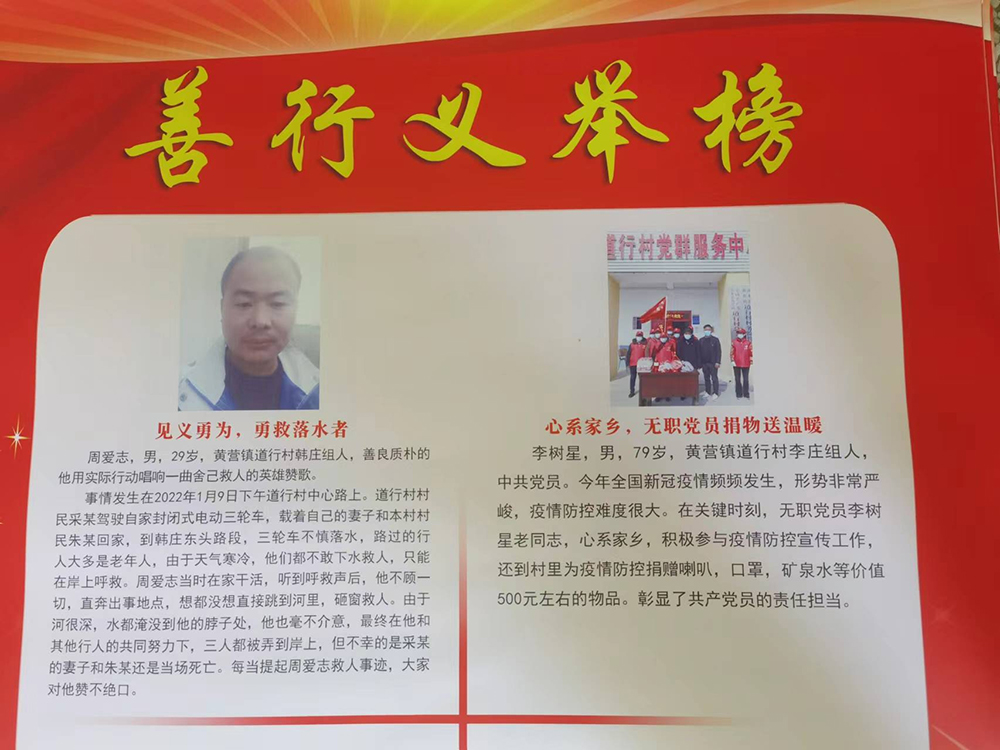 善行义举榜
道行村党群服务中心
见义勇为，勇救落水者
周爱志，男，29岁，黄营镇道行村韩庄组人，善良质朴的
他用实际行动唱响一曲舍己救人的英雄赞歌。
事情发生在2022年1月9日下午道行村中心路上。道行村村
民采某驾驶自家封闭式电动三轮车，载着自己的妻子和本村村
民朱某回家，到韩庄东头路段，三轮车不慎落水，路过的行
人大多是老年人，由于天气寒冷，他们都不敢下水救人，只能
在岸上呼救。周爱志当时在家干活，听到呼救声后，他不顾一
切，直奔出事地点，想都没想直接跳到河里，砸窗救人。由于
河很深，水都淹没到他的脖子处，他也毫不介意，最终在他和
其他行人的共同努力下，三人都被弄到岸上，但不幸的是采某
的妻子和朱某还是当场死亡。每当提起周爱志救人事迹，大家
对他赞不绝口。
心系家乡，无职党员捐物送温暖
李树星，男，79岁，黄营镇道行村李庄组人，
中共党员。今年全国新冠疫情频频发生，形势非常严
峻，疫情防控难度很大。在关键时刻，无职党员李树
星老同志，心系家乡，积极参与疫情防控宣传工作，
还到村里为疫情防控捐赠喇叭，口罩，矿泉水等价值
500元左右的物品。彰显了共产党员的责任担当。